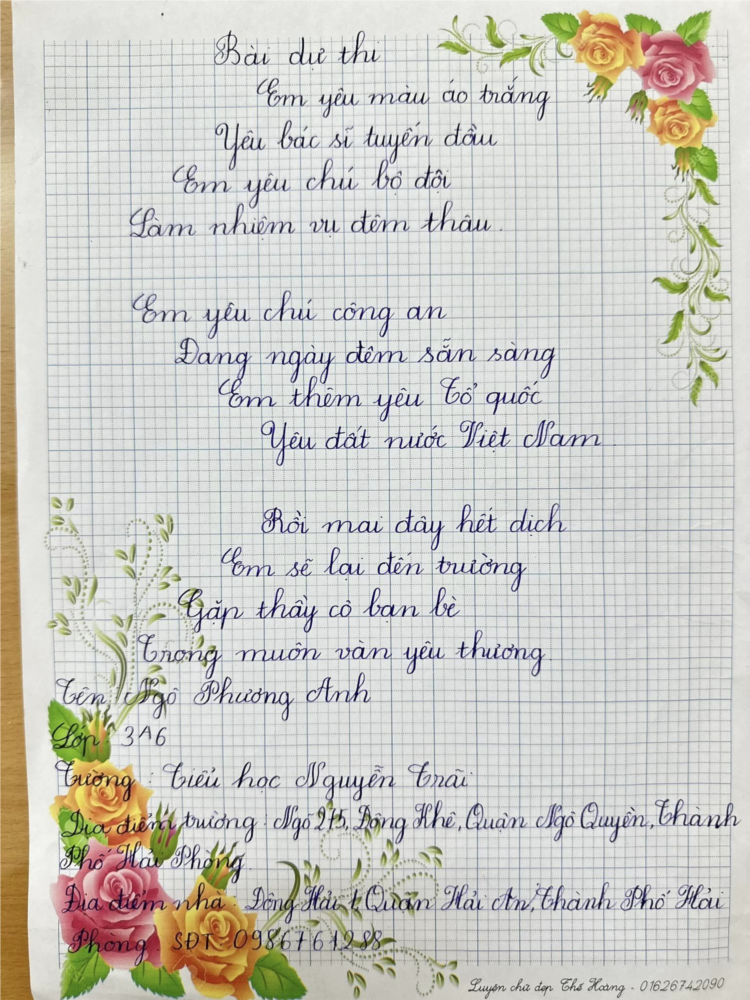 Bài dự thi
Em yêu màu áo trắng
Yêu bác sĩ tuyến đầu
Em yêu chú bộ đội
Làm nhiệm vụ đêm thâu.
Em yêu chú công an
Đang ngày đêm sẵn sàng
Em thêm yêu Tổ quốc
Yêu đất nước Việt Nam
Rồi mai đây hết dịch
Em sẽ lại đến trường
Gặp thầy cô bạn bè
Trong muôn vàn yêu thương
Tên: Ngô Phương Anh
Lớp: 3A6
Trường: Tiểu học Nguyễn Trãi
Địa điểm trường: Ngõ 275, Đông Khê, Quận Ngô Quyền, Thành
Phố Hải Phòng
Địa điểm nhà: Đông Hải 1, Quận Hải An, Thành Phố Hải
Phòng SĐT: 0986761288
Luyện chữ đẹp Thế Hoàng - 01626742090